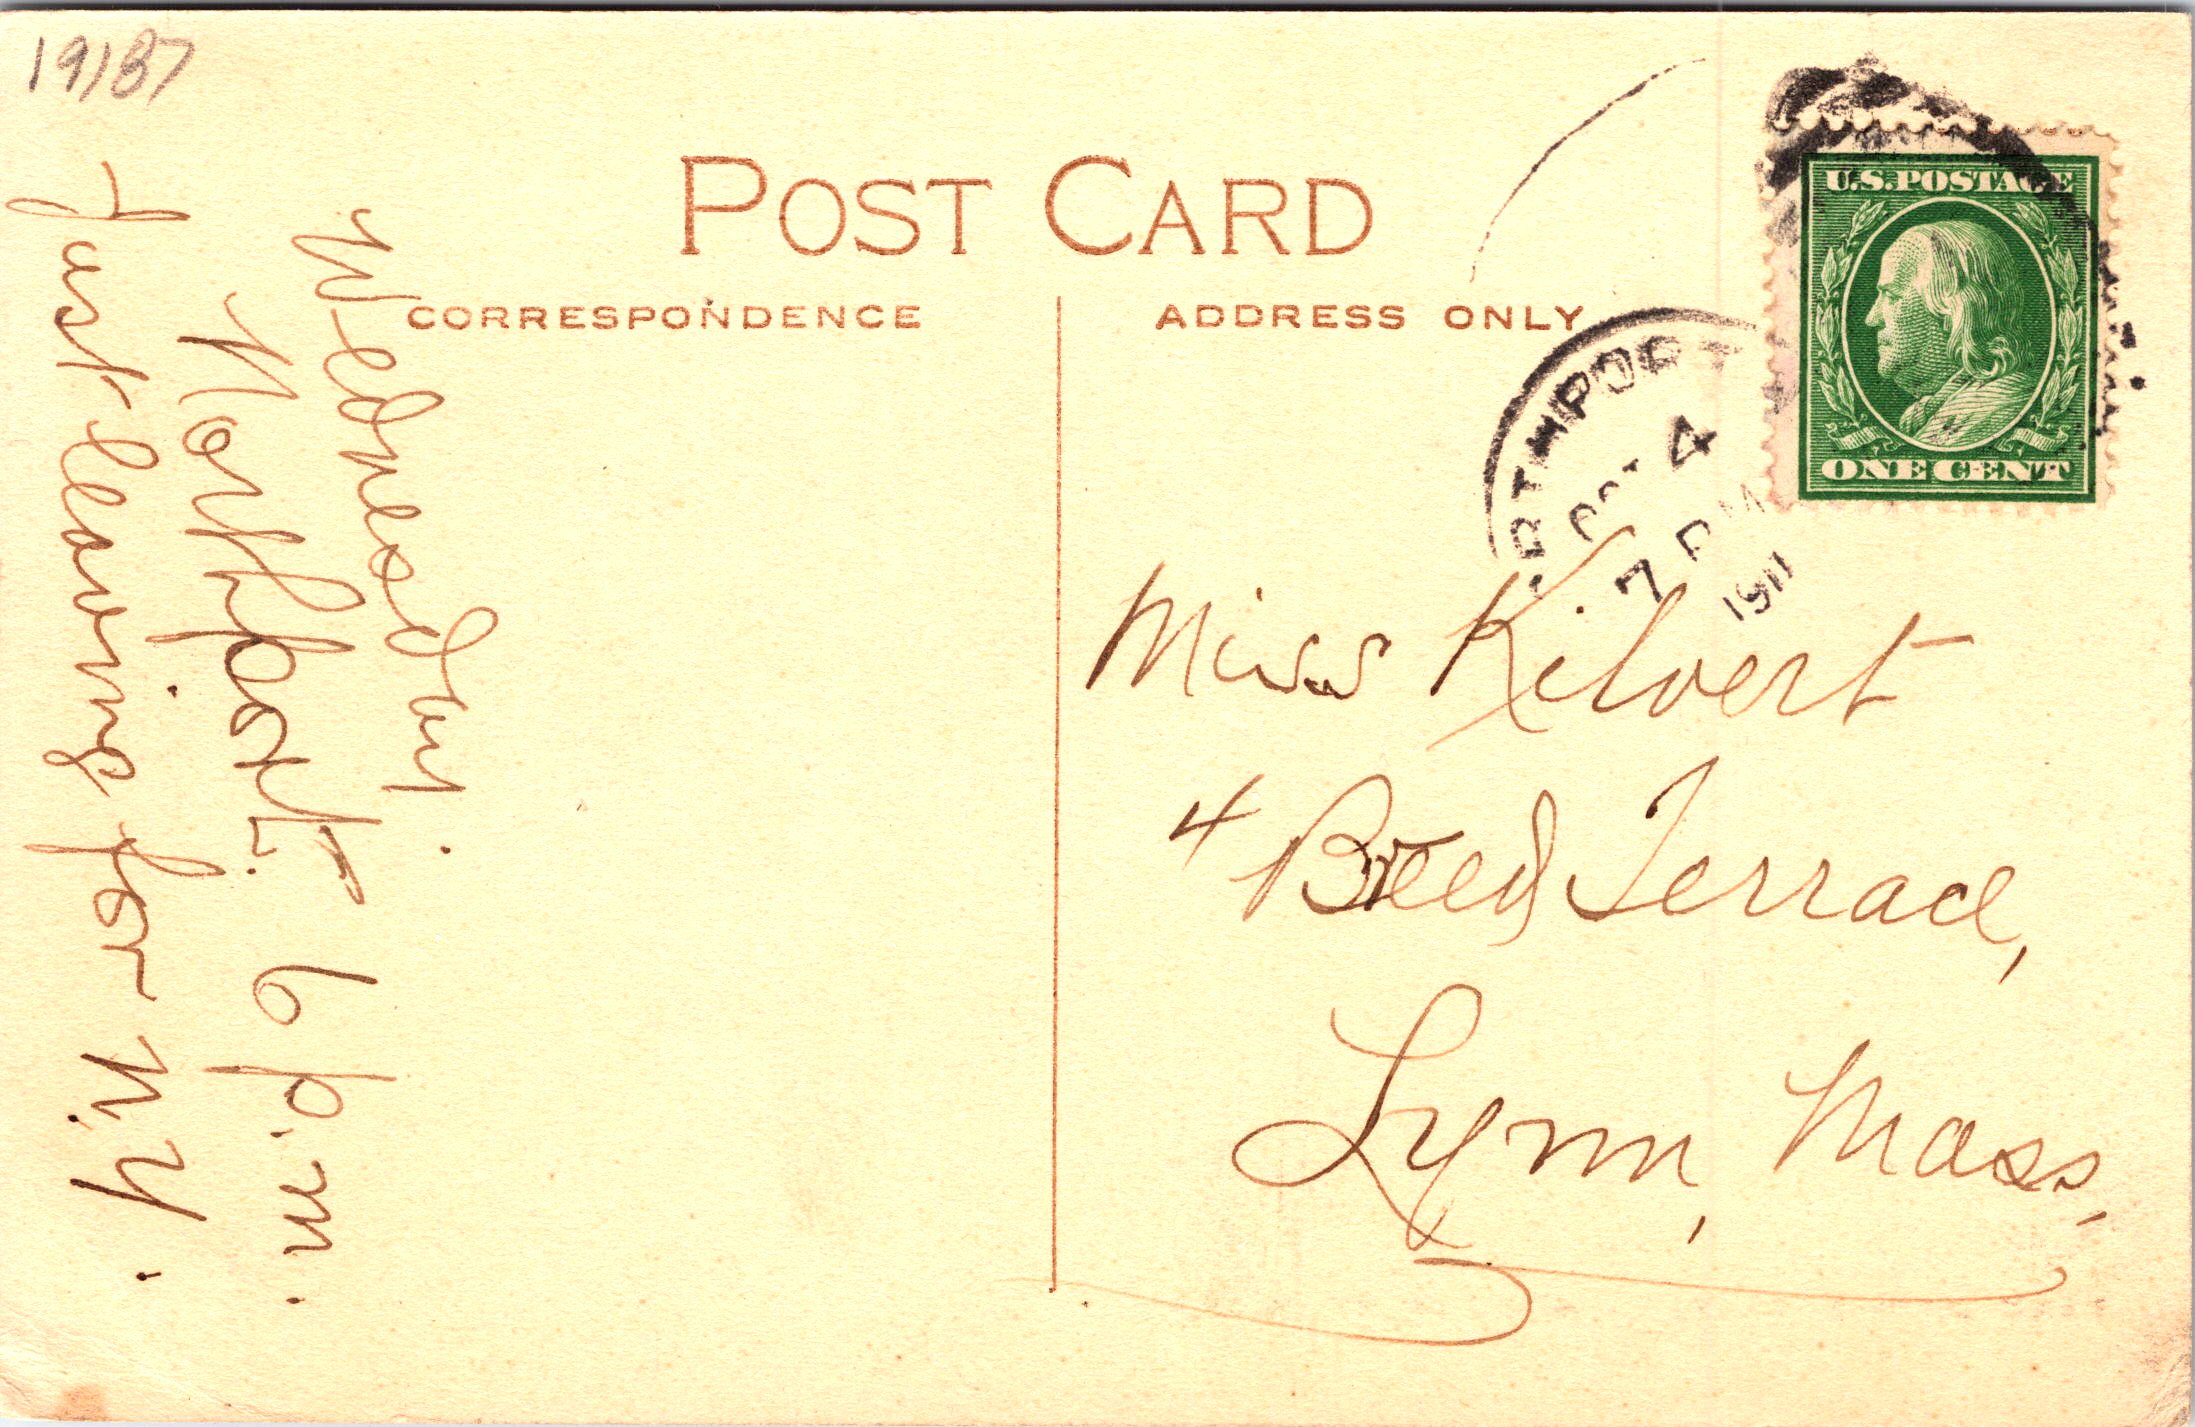 19187
POST CARD
CORRESPONDENCE
ADDRESS ONLY
U.S. POSTAGE
ONE CENT
ORTHPORT
OCT 4
7 PM
1911
Wednesday.
Northport. 6 p.m.
Just leaving for N.Y.
Miss Kilvert
4 Breed Terrace,
Lynn, Mass,